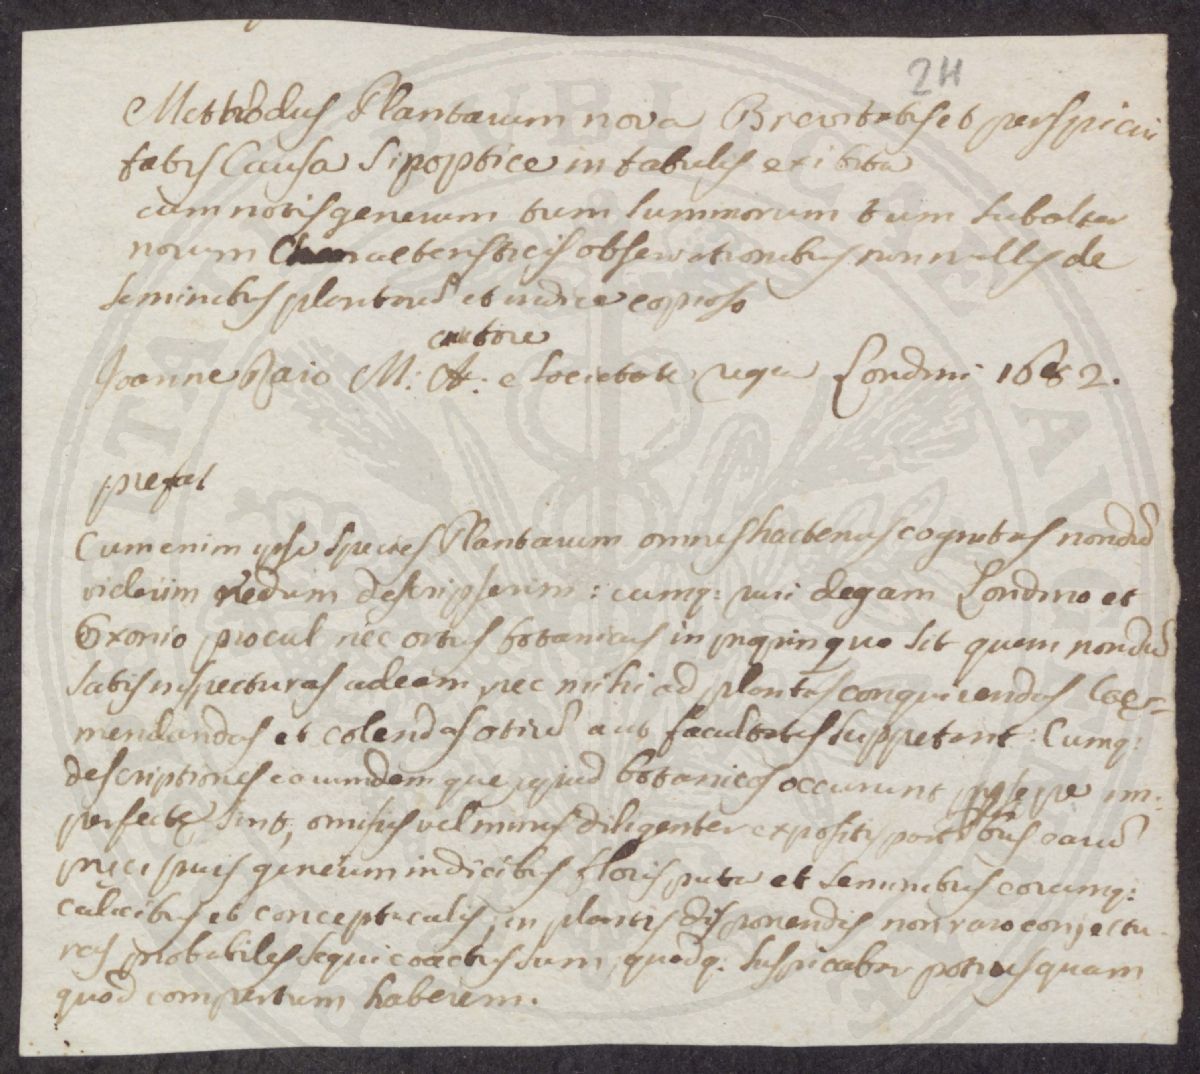 2H
Methodus Plantarum nova Brevitatis et perspicui
tatis Causa Sinoptice in tabulis exibita
cum notis generum tum summorum tum subalter
norum Characteristicis observationibus nonnullis de
seminibus plantarū et indice copioso
autore
Joanne Raio M: A: e Societate regia Londini 1682.
prefat
Cum enim ipse species Plantarum omnes hactenus cognitas nondū
viderim nedum descripserim: cumq: ruri degam Londino et
Oxonio procul nec ortus botanicus in propinquo sit quem nondū
satis inspecturas adeam, nec mihi ad plantas conquirendas Coe-
mendandas et colendas otiū aut facultates suppetant: Cumq:
descriptiones earumdem que apud botanicos occurunt sepe im:
perfecte sint, omissis vel minus diligenter expositis partibus earū
precipuis generum indicibus floris puta et seminibus eorumq:
calicibus et conceptaculis, in plantis disponendis non raro conjectu-
ras probabiles sequi coactus sum, quodq: suspicabar potius quam
quod compertum haberem.